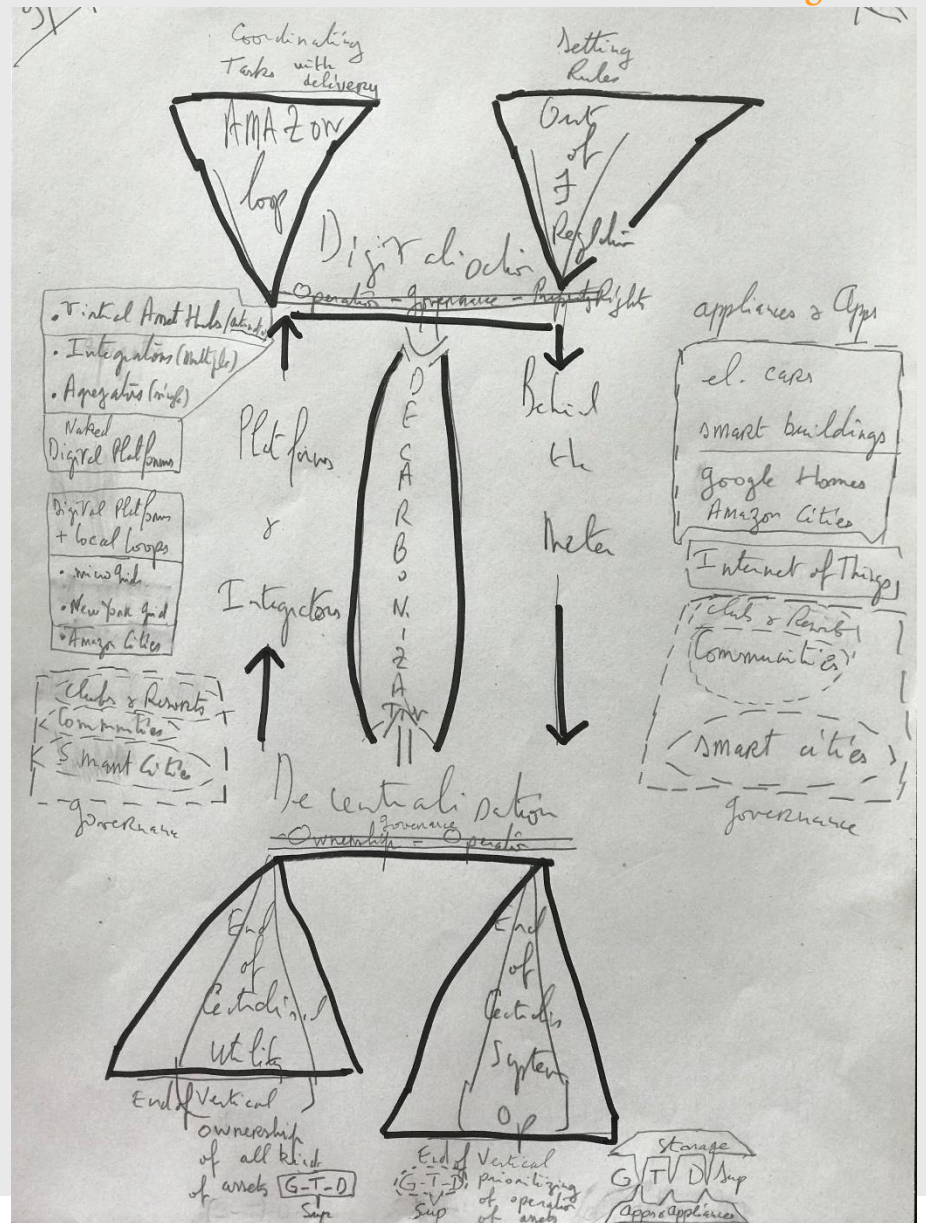 Coordinating
Tasks with
delivery
Setting
Rules
AMAZON
loop
Out
of
Digitalisation
Operation - governance - Property Rights
• Virtual Asset Hubs
• Integrators (multiple)
• Agregators (single)
Naked
Digital Platforms
Digital Platforms
+ local loops
• microgrids
• New York grid
• Amazon Cities
Clubs & Resorts
Communities
Smart Cities
governance
Platforms
&
Integrators
D
E
C
A
R
B
O
N
I
Z
A
Behind
the
Meter
appliances & Apps
el. cars
smart buildings
google Homes
Amazon Cities
Internet of Things
Clubs & Resorts
Communities
smart cities
governance
Decentralisation
governance
Ownership - Operation
End
of
Utility
End
of
System
Op
End of Vertical
ownership
of all kinds
of assets G-T-D
Sup
End of Vertical
G-T-D prioritizing
Sup of operation
of assets
Storage
G T D Sup
Apps & appliances